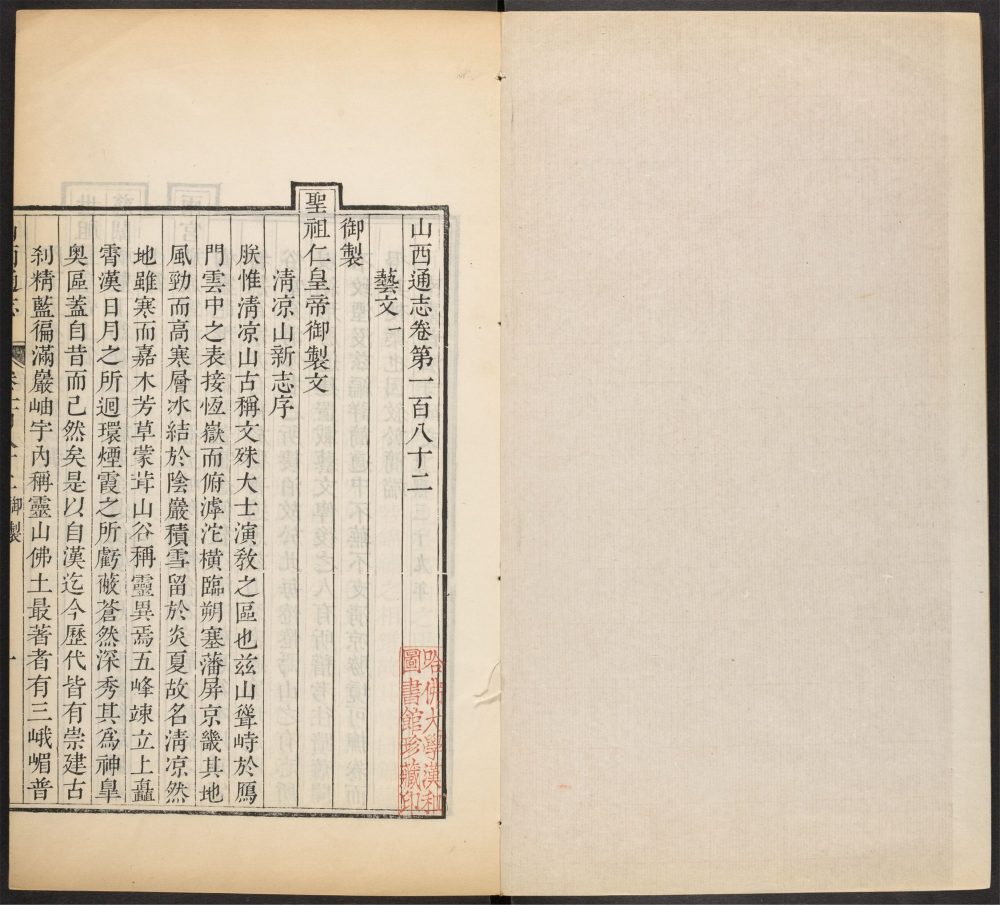 山西通志卷第一百八十二
藝文一
御製
聖祖仁皇帝御製文
清凉山新志序
朕惟清凉山古稱文殊大士演教之區也兹山聳峙於鴈
門雲中之表接恆嶽而俯滹沱橫臨朔塞藩屏京畿其地
風勁而高寒層冰結於陰巖積雪留於炎夏故名清凉然
地雖寒而嘉木芳草蒙茸山谷稱靈異焉五峰竦立上矗
霄漢日月之所迴環煙霞之所虧蔽蒼然深秀其爲神臯
奥區蓋自昔而已然矣是以自漢迄今歷代皆有崇建古
刹精藍徧滿巖岫宇內稱靈山佛土最著者有三峨嵋普
山西通志
御製
一
哈佛大學漢和
圖書館珍藏印